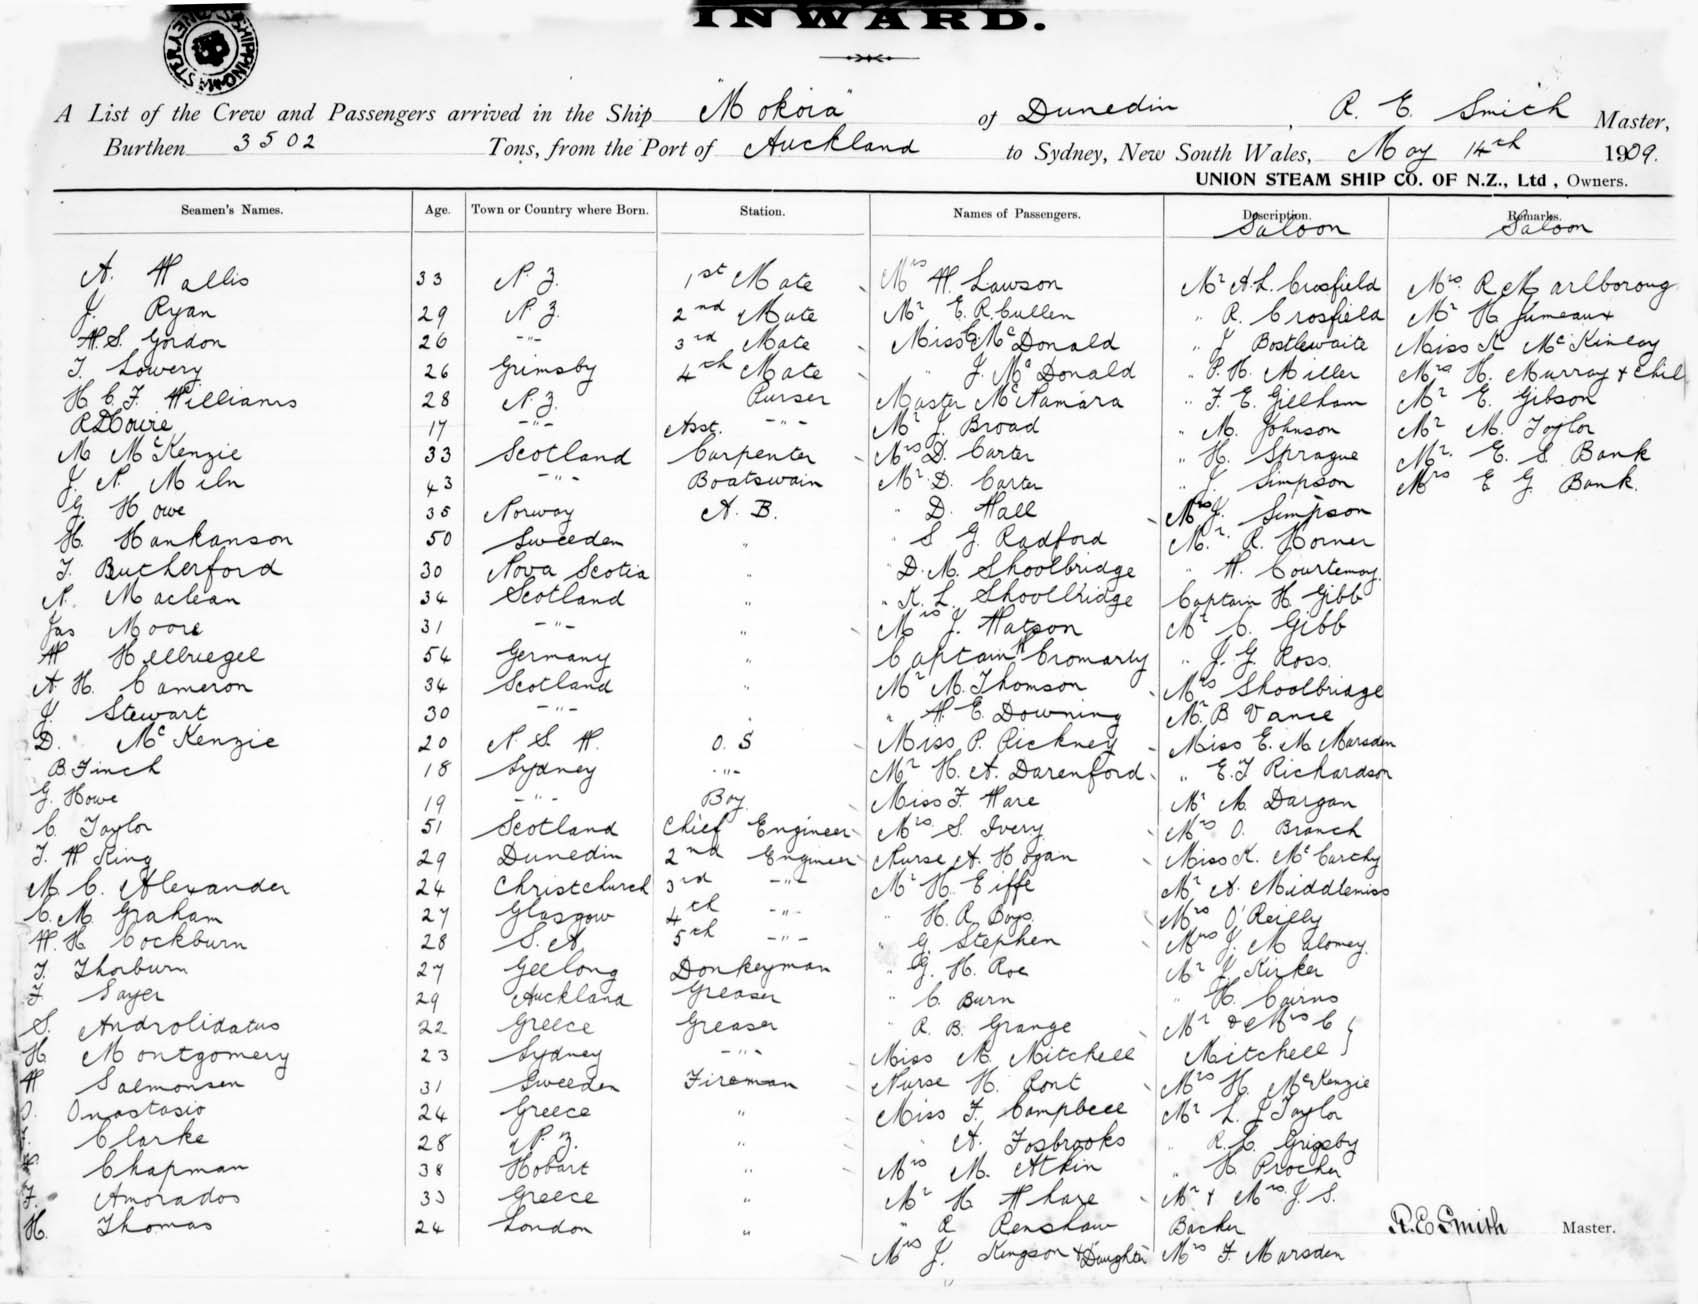 INWARD.
A List of the Crew and Passengers arrived in the Ship "Mokoia" of Dunedin, R. E. Smith Master,
Burthen 3502 Tons, from the Port of Auckland to Sydney, New South Wales, May 14th 1909.
UNION STEAM SHIP CO. OF N.Z., Ltd, Owners.
Seamen's Names. Age. Town or Country where Born. Station. Names of Passengers. Description. Remarks.
Saloon Saloon
A. Wallis 33 N.Z. 1st Mate Mrs W. Lawson Mr A.L. Crosfield Mrs. R Marlboroug
J. Ryan 29 N.Z. 2nd Mate Mr E.R. Cullen " R. Crosfield Mr H Jumeaux
W.S. Gordon 26 -"- 3rd Mate Miss E McDonald " J Bostlewaite Miss K McKinlay
T. Lowery 26 Grimsby 4th Mate " J. McDonald " P.H. Miller Mrs H. Murray & Chil
H C F Williams 28 N.Z. Purser Master McNamara " F. E. Gillham Mr E. Gibson
17 -"- Asst. -"- Mr J. Broad " M. Johnson Mr M. Taylor
M McKenzie 33 Scotland Carpenter Mrs D. Carter " H. Sprague Mr. E. S. Bank
J. N. Miln 43 -"- Boatswain Mr. D. Carter " J. Simpson Mrs E G. Bank.
G Howe 35 Norway A. B. " D. Hall Mrs J. Simpson
H. Hankanson 50 Sweeden " " S G. Radford Mr. R. Horner
T. Rutherford 30 Nova Scotia " " D. M. Shoolbridge " W. Courtenay.
N. Maclean 34 Scotland " " K. L. Shoolbridge Captain H Gibb
Jas Moore 31 -"- " Mrs J. Watson Mr C. Gibb
W Hellriegel 54 Germany " Captain W Cromarty " J. G. Ross.
A. H. Cameron 34 Scotland " Mr M. Thomson Mrs Shoolbridge
J. Stewart 30 -"- " " W. E. Downing Mr. B Vance
D. McKenzie 20 N. S. W. O. S Miss P. Pickney Miss E. M Marsden
B. Finch 18 Sydney -"- Mr H. A. Darenford " E. J Richardson
G. Howe 19 -"- Boy. Miss F. Hare Mr M. Dargan
C. Taylor 51 Scotland Chief Engineer Mrs S. Ivery. Mrs O. Branch
T. W King 29 Dunedin 2nd Engineer Nurse A. Hogan Miss K. McCarthy
M. C. Alexander 24 Christchurch 3rd -"- Mr H. Eiffe Mr A. Middlemiss
C. M. Graham 27 Glasgow 4th -"- " H. R. Boys. Mrs O'Reilly
W. H Cockburn 28 S. A. 5th -"- " G. Stephen Mrs J. Maloney.
T. Thorburn 27 Geelong Donkeyman " G. H. Roe Mr J. Kirker
F. Sayer 29 Auckland Greaser " C. Burn " H. Cairns
S. Androlidatus 22 Greece Greaser " R. B. Grange Mr & Mrs C
H Montgomery 23 Sydney -"- Miss M. Mitchell Mitchell
W Salmonsen 31 Sweeden Fireman Nurse H. Ront Mrs H. McKenzie
O. Onastasio 24 Greece " Miss F. Campbell Mr L. J Taylor
Clarke 28 N.Z. " " A. Fosbrooks " R. C. Grigsby
Chapman 38 Hobart " Mrs M. Atkin " H. Procher
F. Amorados 33 Greece " Mr H Whare Mr & Mrs J. S.
H. Thomas 24 London " " R Renshaw Backer R. E Smith Master.
Mrs J. Kingson & Daughter Mrs F. Marsden